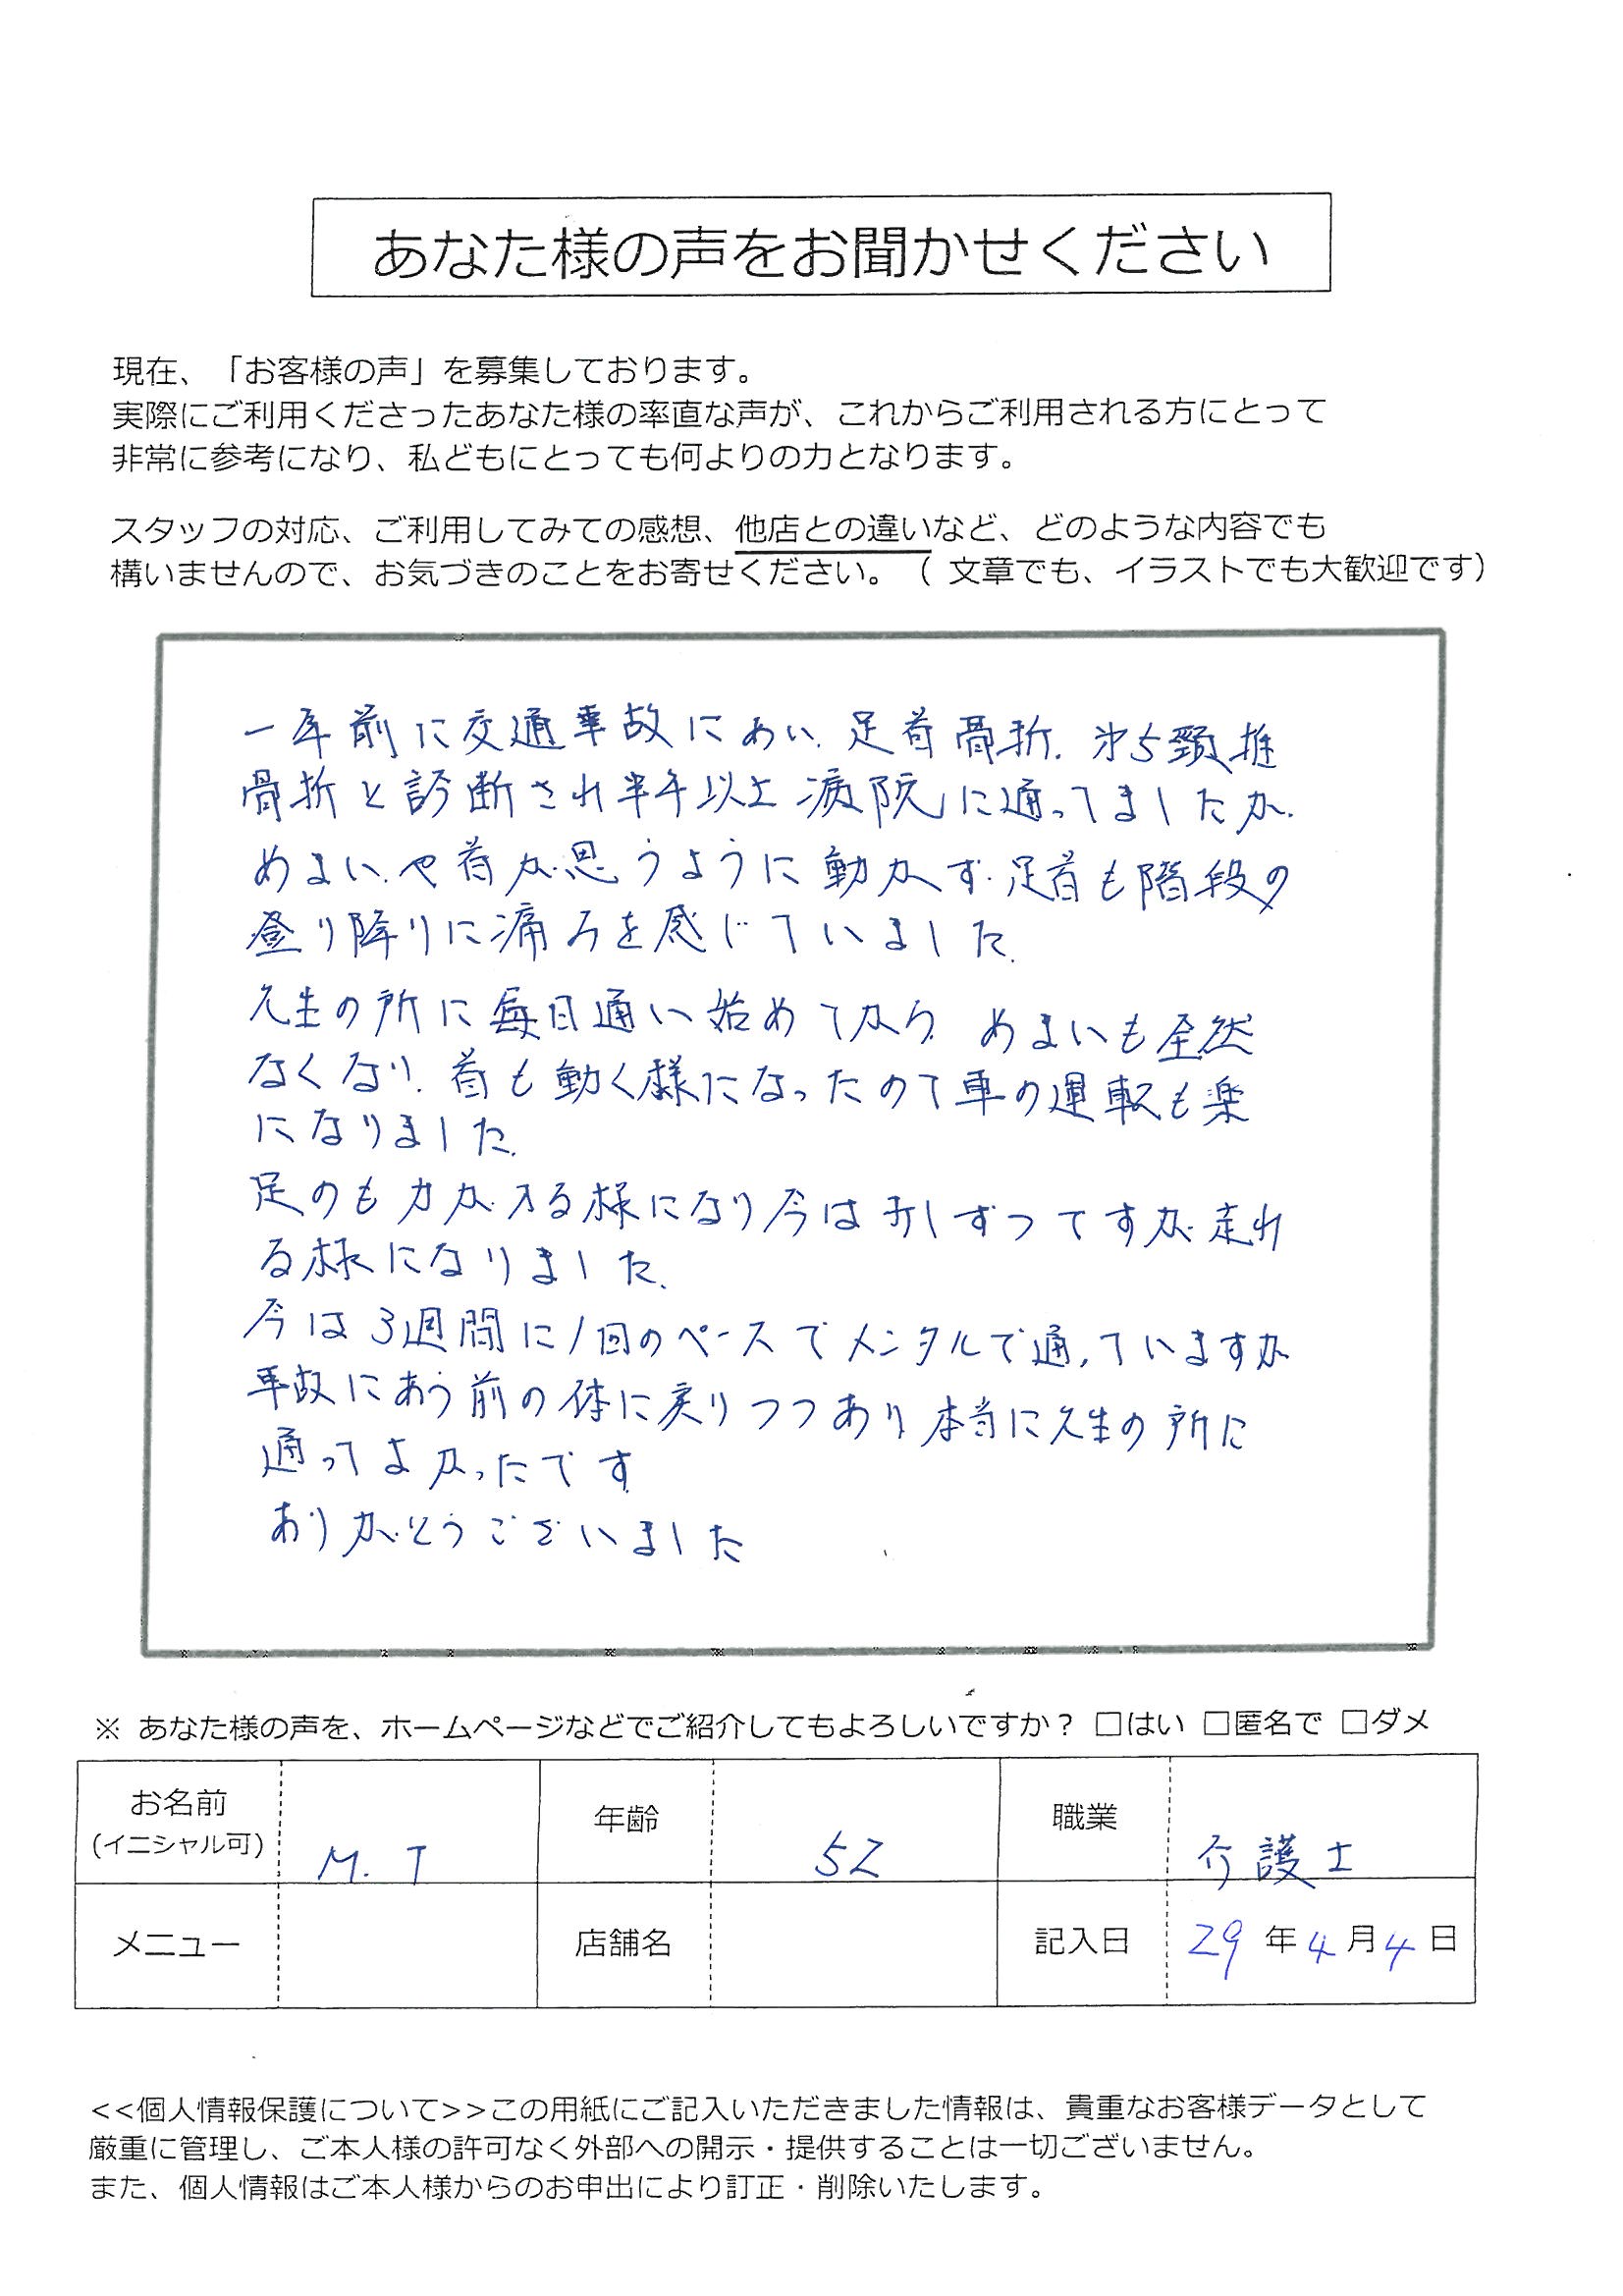 あなた様の声をお聞かせください
現在、「お客様の声」を募集しております。
実際にご利用くださったあなた様の率直な声が、これからご利用される方にとって
非常に参考になり、私どもにとっても何よりの力となります。
スタッフの対応、ご利用してみての感想、他店との違いなど、どのような内容でも
構いませんので、お気づきのことをお寄せください。（ 文章でも、イラストでも大歓迎です）
一年前に交通事故にあい、足首骨折、第5頸椎
骨折と診断され半年以上病院に通ってましたが、
めまいや首が思うように動かず、足首も階段の
登り降りに痛みを感じていました。
先生の所に毎日通い始めてから、めまいも全然
なくなり、首も動く様になったので車の運転も楽
になりました。
足のも力が入る様になり今は少しずつですが走れ
る様になりました。
今は3週間に1回のペースでメンタルで通っていますが
事故にあう前の体に戻りつつあり、本当に先生の所に
通ってよかったです
ありがとうございました
※ あなた様の声を、ホームページなどでご紹介してもよろしいですか？ □はい □匿名で □ダメ
お名前
(イニシャル可)
M.T
年齢
52
職業
介護士
メニュー
店舗名
記入日
29年4月4日
<<個人情報保護について>>この用紙にご記入いただきました情報は、貴重なお客様データとして
厳重に管理し、ご本人様の許可なく外部への開示・提供することは一切ございません。
また、個人情報はご本人様からのお申出により訂正・削除いたします。